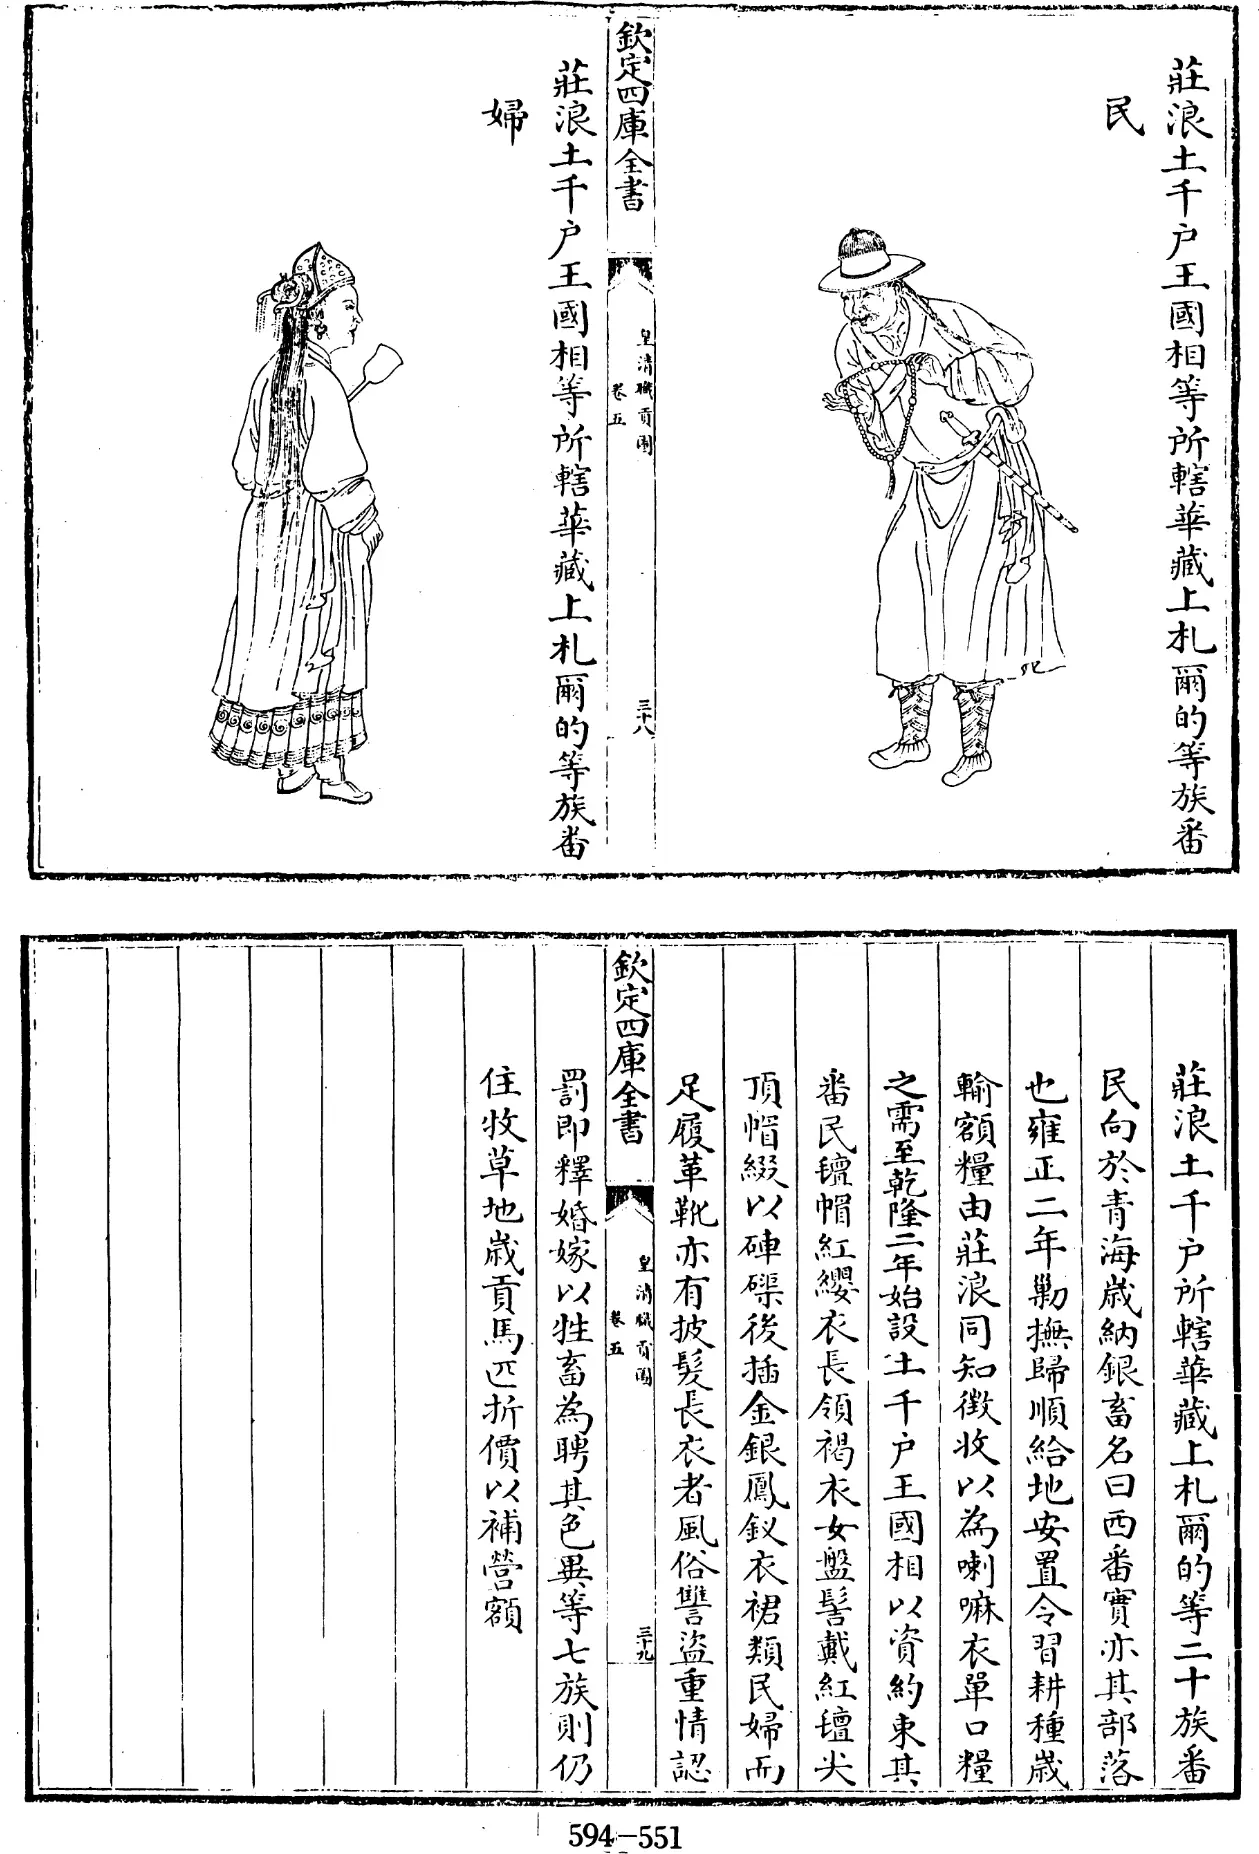 莊浪土千户王國相等所轄華藏上札爾的等族番
民
欽定四庫全書
皇清職貢圖
卷五
三十八
莊浪土千户王國相等所轄華藏上札爾的等族番
婦
莊浪土千户所轄華藏上札爾的等二十族番
民向於青海歲納銀畜名曰西番實亦其部落
也雍正二年勦撫歸順給地安置令習耕種歲
輸額糧由莊浪同知徴收以為喇嘛衣單口糧
之需至乾隆二年始設土千户王國相以資約束其
番民氊帽紅纓衣長領褐衣女盤髻戴紅氊尖
頂帽綴以硨磲後插金銀鳳釵衣裙類民婦而
足履革靴亦有披髮長衣者風俗讐盜重情認
欽定四庫全書
皇清職貢圖
卷五
三十九
罰即釋婚嫁以牲畜為聘其色異等七族則仍
住牧草地歲貢馬匹折價以補營額
594-551